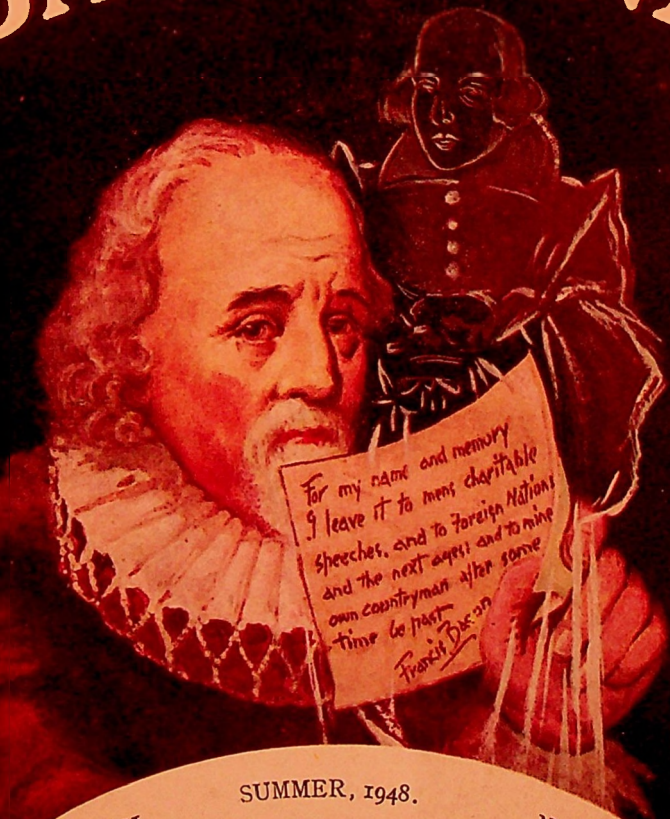 For my name and memory
I leave it to mens charitable
speeches, and to Foreign Nations
and the next ages; and to mine
own countryman after some
time be past
Francis Bacon
SUMMER, 1948.